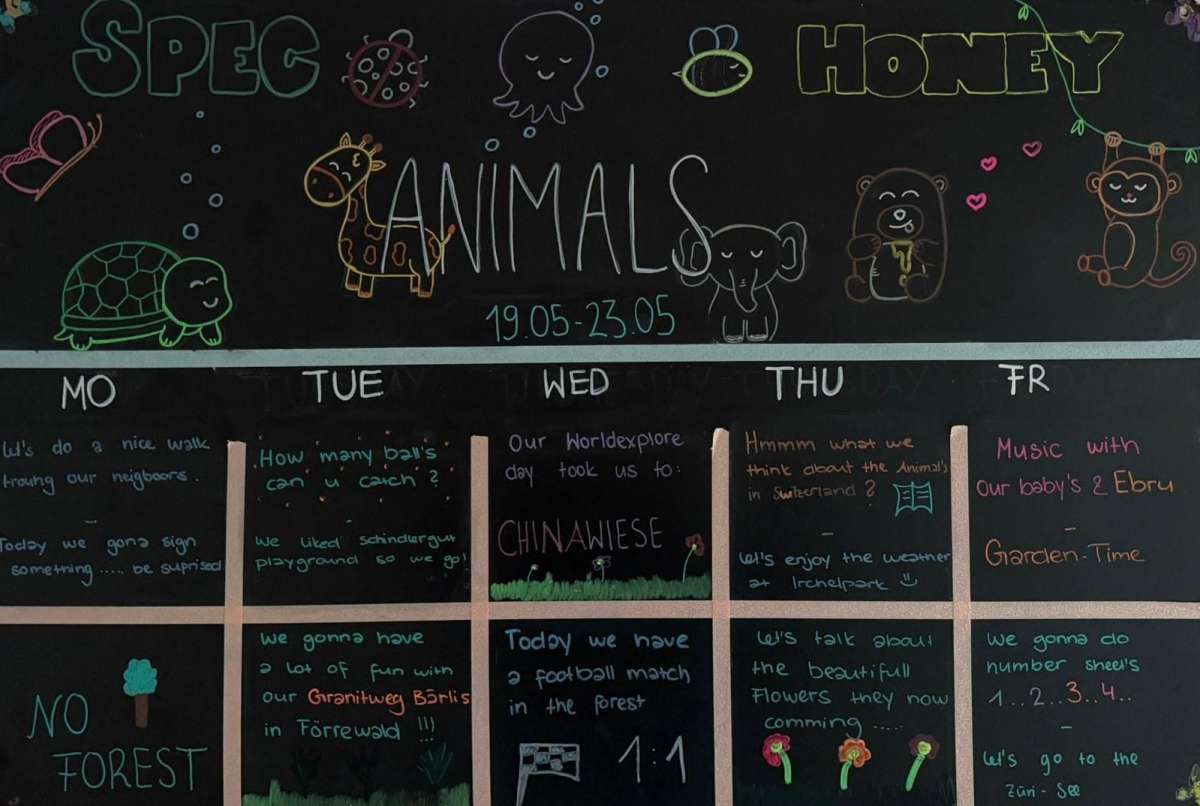 SPEC
HONEY
ANIMALS
19.05-23.05
MO
TUE
WED
THU
FR
Let's do a nice walk
troung our neigboors.
-
Today we gona sign
something ..... be suprised
How many ball's
can u catch?
-
We liked schindlergut
playground so we go!
Our Worldexplore
day took us to:
CHINAWIESE
Hmmm what we
think about the Animal's
in Switzerland?
-
Let's enjoy the weather
at Irchelpark
Music with
Our baby's & Ebru
-
Garden-Time
NO
FOREST
We gonna have
a lot of fun with
our Granitweg Bärlis
in Förrewald !!!
Today we have
a football match
in the forest
1:1
Let's talk about
the beautifull
Flowers they now
comming .....
We gonna do
number sheet's
1..2..3..4..
-
Let's go to the
Züri-See